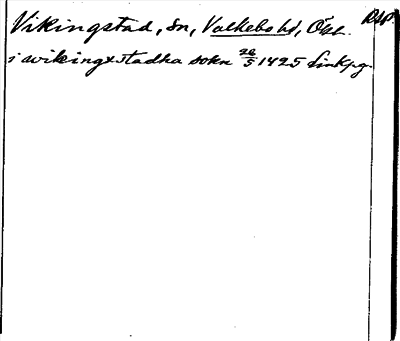 Vikingstad, sn, Valkebo hd, Ög. RAP
i wikingxstadha sokn 26/5 1425 Linkpg.